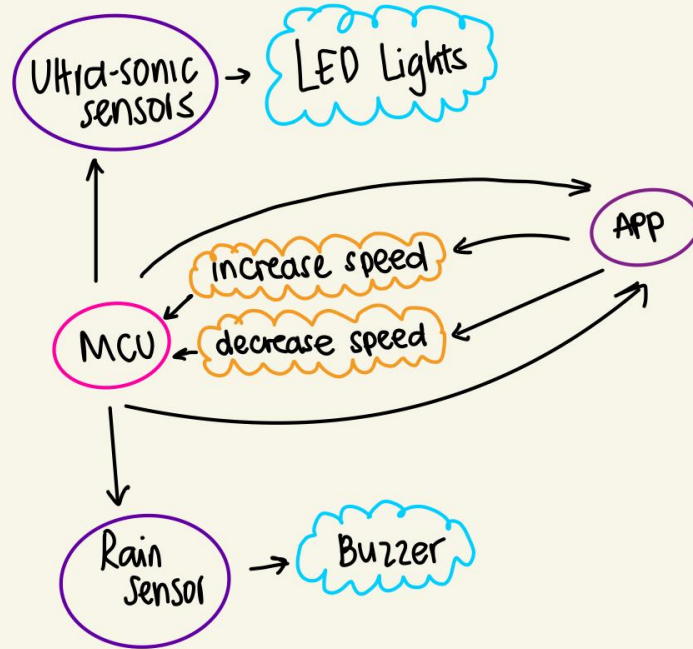 Ultra-sonic
sensors
LED Lights
APP
increase speed
MCU
decrease speed
Rain
sensor
Buzzer